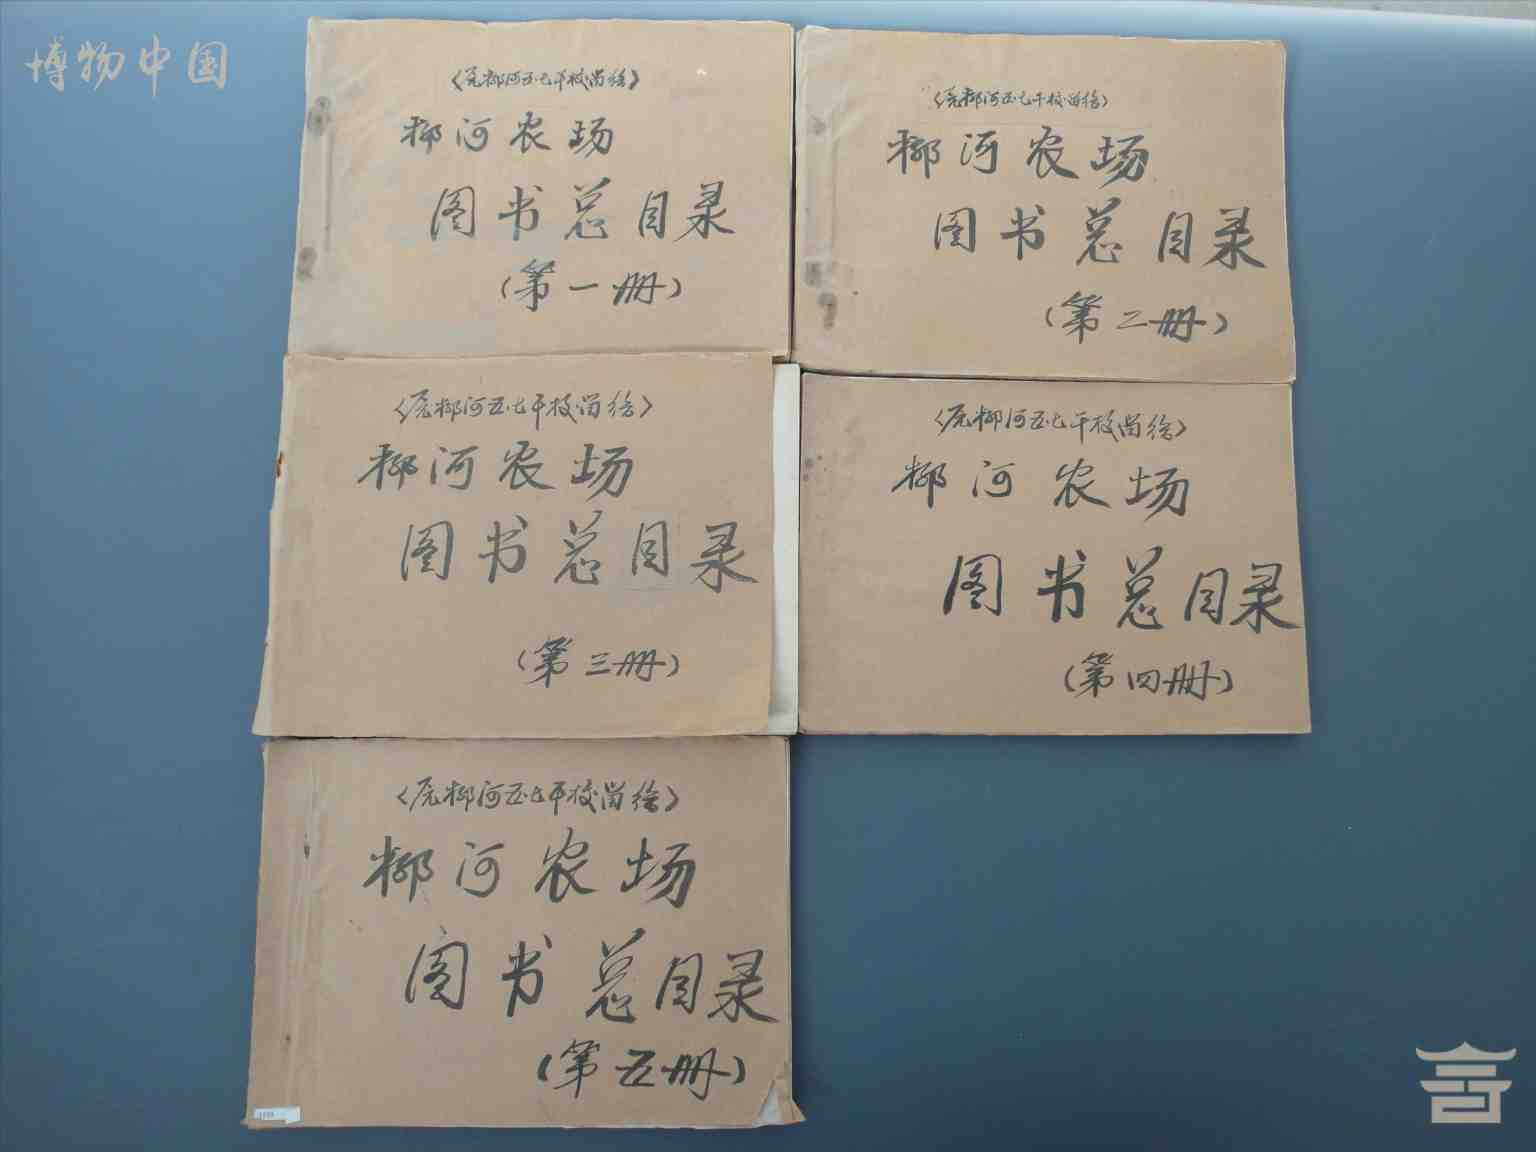 博物中国
《原柳河五七干校留给》
柳河农场
图书总目录
(第一册)
《原柳河五七干校留给》
柳河农场
图书总目录
(第二册)
《原柳河五七干校留给》
柳河农场
图书总目录
(第三册)
《原柳河五七干校留给》
柳河农场
图书总目录
(第四册)
《原柳河五七干校留给》
柳河农场
图书总目录
(第五册)